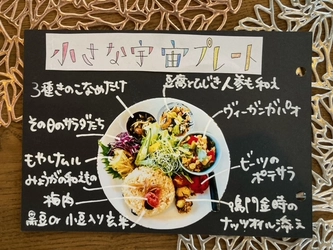 小さな宇宙プレート
3種きのこなめたけ
その日のサラダたち
もやしナムル
みょうがの和えもの
梅肉
黒豆の小豆入り玄米
豆腐とひじき人参も和え
ヴィーガンガパオ
ビーツの
ポテサラ
鳴門金時の
ナッツオイル添え